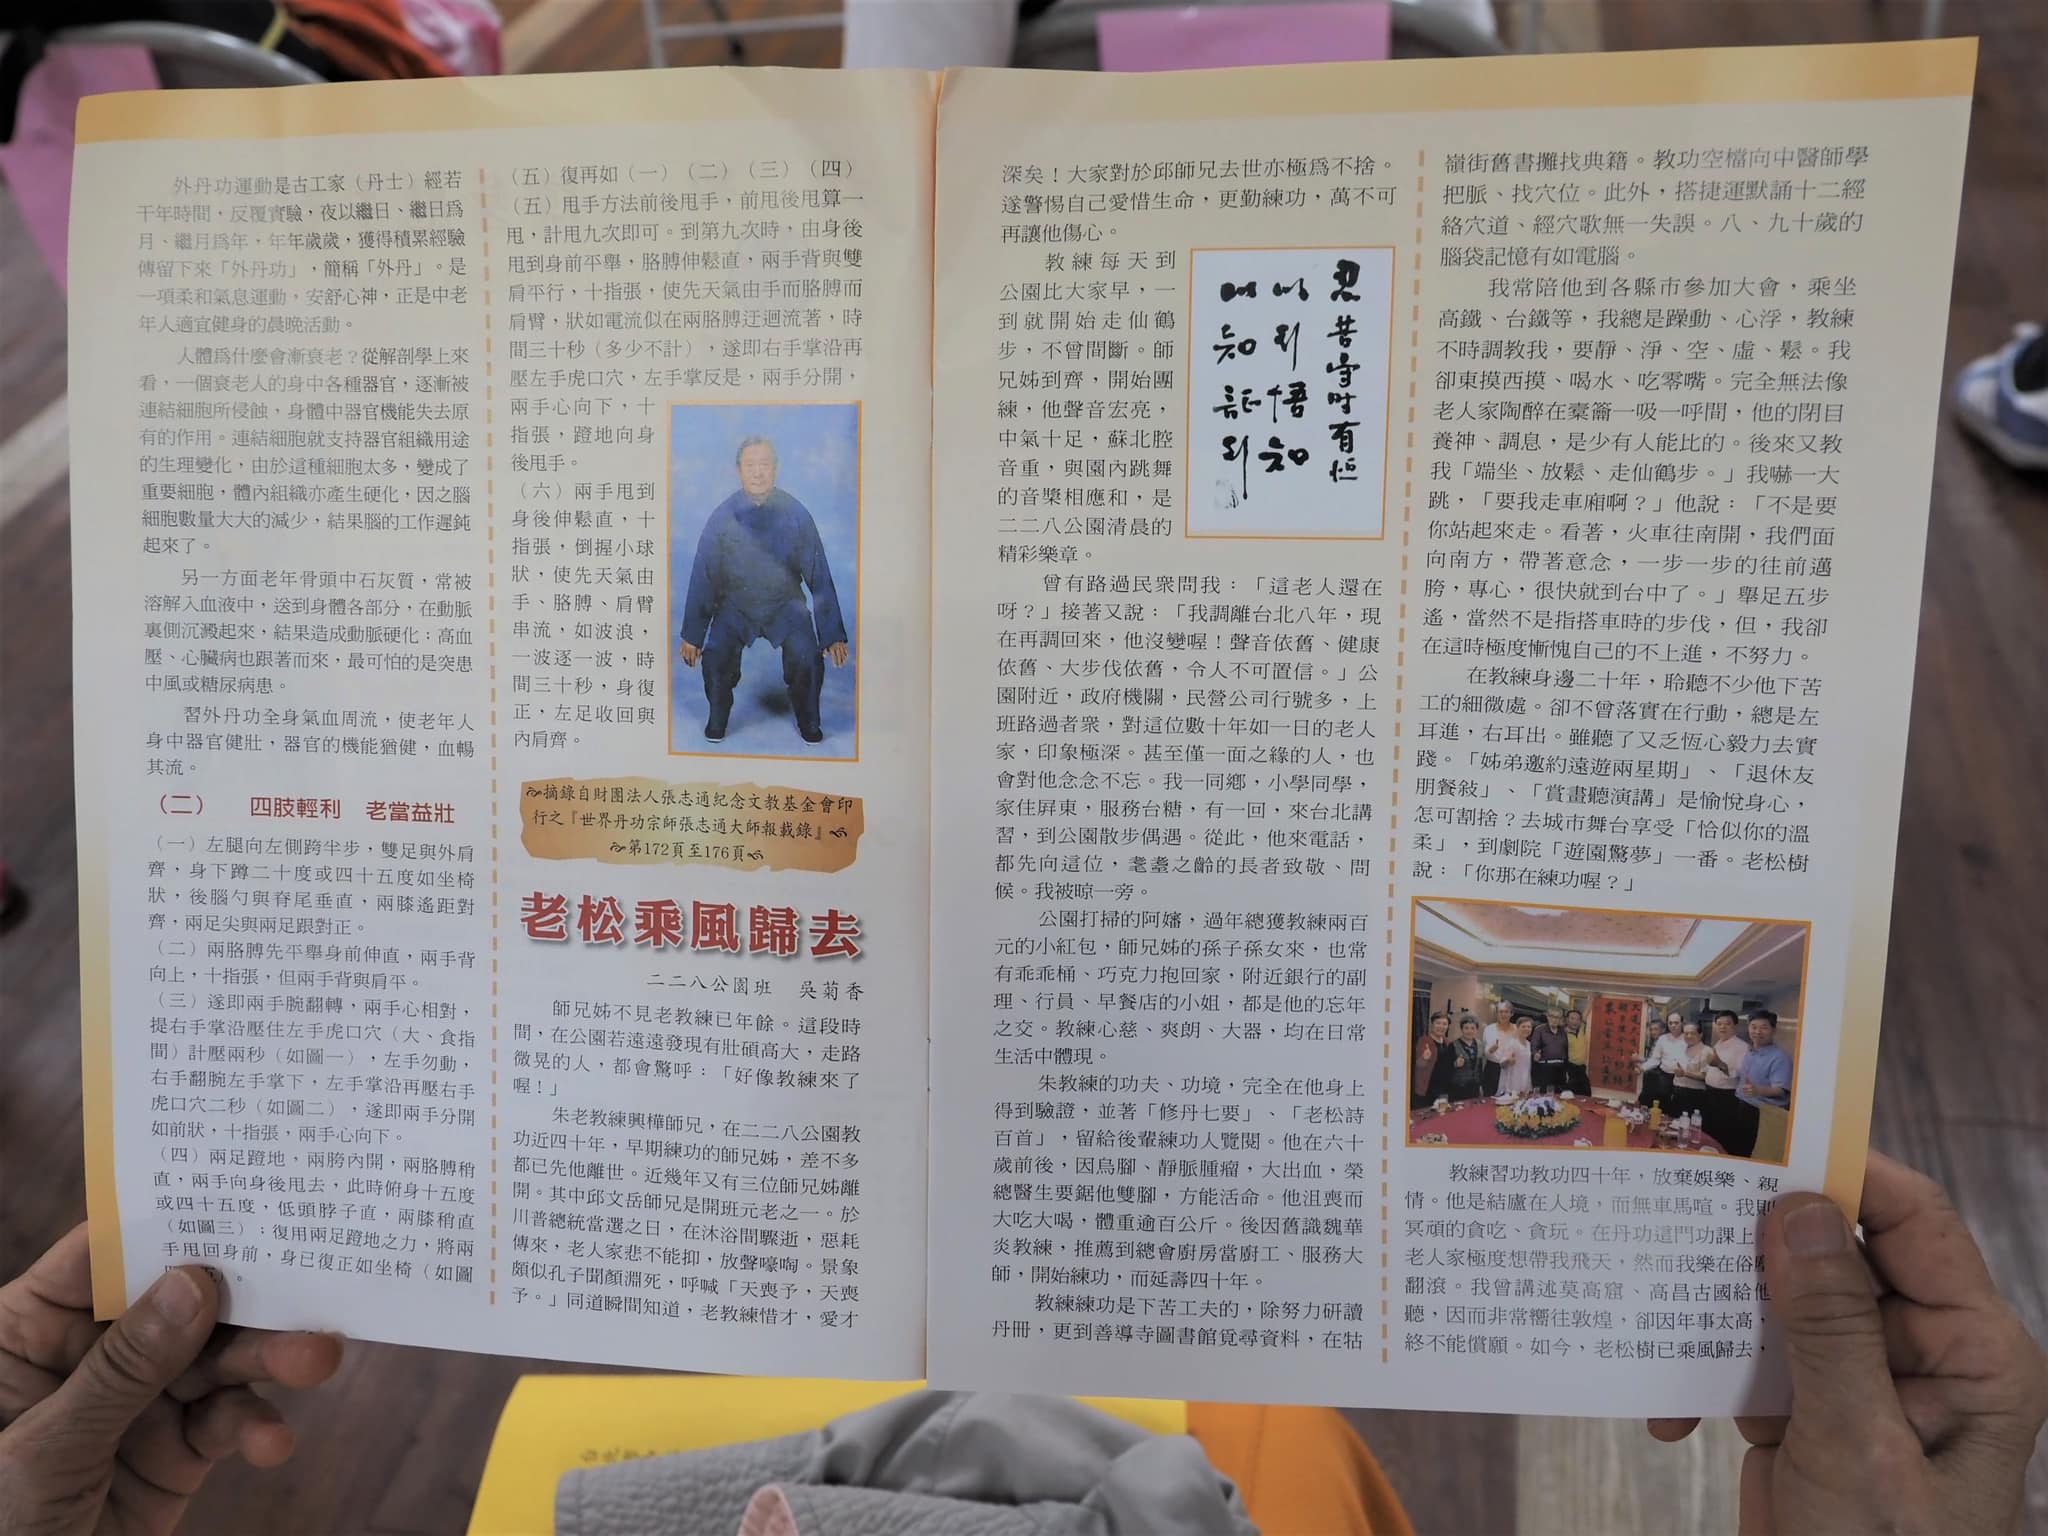 外丹功運動是古工家（丹士）經若
干年時間，反覆實驗，夜以繼日、繼日爲
月、繼月爲年，年年歲歲，獲得積累經驗
傳留下來「外丹功」，簡稱「外丹」。是
一項柔和氣息運動，安舒心神，正是中老
年人適宜健身的晨晚活動。
人體爲什麼會漸衰老？從解剖學上來
看，一個衰老人的身中各種器官，逐漸被
連結細胞所侵蝕，身體中器官機能失去原
有的作用。連結細胞就支持器官組織用途
的生理變化，由於這種細胞太多，變成了
重要細胞，體內組織亦產生硬化，因之腦
細胞數量大大的減少，結果腦的工作遲鈍
起來了。
另一方面老年骨頭中石灰質，常被
溶解入血液中，送到身體各部分，在動脈
裏側沉澱起來，結果造成動脈硬化：高血
壓、心臟病也跟著而來，最可怕的是突患
中風或糖尿病患。
習外丹功全身氣血周流，使老年人
身中器官健壯，器官的機能猶健，血暢
其流。
（二） 四肢輕利 老當益壯
（一）左腿向左側跨半步，雙足與外肩
齊，身下蹲二十度或四十五度如坐椅
狀，後腦勺與脊尾垂直，兩膝遙距對
齊，兩足尖與兩足跟對正。
（二）兩胳膊先平舉身前伸直，兩手背
向上，十指張，但兩手背與肩平。
（三）遂即兩手腕翻轉，兩手心相對，
提右手掌沿壓住左手虎口穴（大、食指
間）計壓兩秒（如圖一），左手勿動，
右手翻腕左手掌下，左手掌沿再壓右手
虎口穴二秒（如圖二），遂即兩手分開
如前狀，十指張，兩手心向下。
（四）兩足蹬地，兩胯內開，兩胳膊稍
直，兩手向身後甩去，此時俯身十五度
或四十五度，低頭脖子直，兩膝稍直
（如圖三）；復用兩足蹬地之力，將兩
手甩回身前，身已復正如坐椅（如圖
五）。
（五）復再如（一）（二）（三）（四）
（五）甩手方法前後甩手，前甩後甩算一
甩，計甩九次即可。到第九次時，由身後
甩到身前平舉，胳膊伸鬆直，兩手背與雙
肩平行，十指張，使先天氣由手而胳膊而
肩臂，狀如電流似在兩胳膊迂迴流著，時
間三十秒（多少不計），遂即右手掌沿再
壓左手虎口穴，左手掌反是，兩手分開，
兩手心向下，十
指張，蹬地向身
後甩手。
（六）兩手甩到
身後伸鬆直，十
指張，倒握小球
狀，使先天氣由
手、胳膊、肩臂
串流，如波浪，
一波逐一波，時
間三十秒，身復
正，左足收回與
內肩齊。
摘錄自財團法人張志通紀念文教基金會印
行之『世界丹功宗師張志通大師報載錄』
第172頁至176頁
老松乘風歸去
二二八公園班 吳菊香
師兄姊不見老教練已年餘。這段時
間，在公園若遠遠發現有壯碩高大，走路
微晃的人，都會驚呼：「好像教練來了
喔！」
朱老教練興樺師兄，在二二八公園教
功近四十年，早期練功的師兄姊，差不多
都已先他離世。近幾年又有三位師兄姊離
開。其中邱文岳師兄是開班元老之一。於
川普總統當選之日，在沐浴間驟逝，惡耗
傳來，老人家悲不能抑，放聲嚎啕。景象
頗似孔子聞顏淵死，呼喊「天喪予，天喪
予。」同道瞬間知道，老教練惜才，愛才
深矣！大家對於邱師兄去世亦極爲不捨。
遂警惕自己愛惜生命，更勤練功，萬不可
再讓他傷心。
教練每天到
公園比大家早，一
到就開始走仙鶴
步，不曾間斷。師
兄姊到齊，開始團
練，他聲音宏亮，
中氣十足，蘇北腔
音重，與園內跳舞
的音樂相應和，是
二二八公園清晨的
精彩樂章。
忍苦守時有恒
以到悟知
以知証到
曾有路過民衆問我：「這老人還在
呀？」接著又說：「我調離台北八年，現
在再調回來，他沒變喔！聲音依舊、健康
依舊、大步伐依舊，令人不可置信。」公
園附近，政府機關，民營公司行號多，上
班路過者衆，對這位數十年如一日的老人
家，印象極深。甚至僅一面之緣的人，也
會對他念念不忘。我一同鄉，小學同學，
家住屏東，服務台糖，有一回，來台北講
習，到公園散步偶遇。從此，他來電話，
都先向這位，耄耋之齡的長者致敬、問
候。我被晾一旁。
公園打掃的阿嬸，過年總獲教練兩百
元的小紅包，師兄姊的孫子孫女來，也常
有乖乖桶、巧克力抱回家，附近銀行的副
理、行員、早餐店的小姐，都是他的忘年
之交。教練心慈、爽朗、大器，均在日常
生活中體現。
朱教練的功夫、功境，完全在他身上
得到驗證，並著「修丹七要」、「老松詩
百首」，留給後輩練功人覽閱。他在六十
歲前後，因烏腳、靜脈腫瘤，大出血，榮
總醫生要鋸他雙腳，方能活命。他沮喪而
大吃大喝，體重逾百公斤。後因舊識魏華
炎教練，推薦到總會廚房當廚工、服務大
師，開始練功，而延壽四十年。
教練練功是下苦工夫的，除努力研讀
丹冊，更到善導寺圖書館覓尋資料，在牯
嶺街舊書攤找典籍。教功空檔向中醫師學
把脈、找穴位。此外，搭捷運默誦十二經
絡穴道、經穴歌無一失誤。八、九十歲的
腦袋記憶有如電腦。
我常陪他到各縣市參加大會，乘坐
高鐵、台鐵等，我總是躁動、心浮，教練
不時調教我，要靜、淨、空、虛、鬆。我
卻東摸西摸、喝水、吃零嘴。完全無法像
老人家陶醉在橐籥一吸一呼間，他的閉目
養神、調息，是少有人能比的。後來又教
我「端坐、放鬆、走仙鶴步。」我嚇一大
跳，「要我走車廂啊？」他說：「不是要
你站起來走。看著，火車往南開，我們面
向南方，帶著意念，一步一步的往前邁
胯，專心，很快就到台中了。」舉足五步
遙，當然不是指搭車時的步伐，但，我卻
在這時極度慚愧自己的不上進，不努力。
在教練身邊二十年，聆聽不少他下苦
工的細微處。卻不曾落實在行動，總是左
耳進，右耳出。雖聽了又乏恆心毅力去實
踐。「姊弟邀約遠遊兩星期」、「退休友
朋餐敍」、「賞畫聽演講」是愉悅身心，
怎可割捨？去城市舞台享受「恰似你的溫
柔」，到劇院「遊園驚夢」一番。老松樹
說：「你那在練功喔？」
教練習功教功四十年，放棄娛樂、親
情。他是結廬在人境，而無車馬喧。我則
冥頑的貪吃、貪玩。在丹功這門功課上
老人家極度想帶我飛天，然而我樂在俗
翻滾。我曾講述莫高窟、高昌古國給他
聽，因而非常嚮往敦煌，卻因年事太高，
終不能償願。如今，老松樹已乘風歸去，